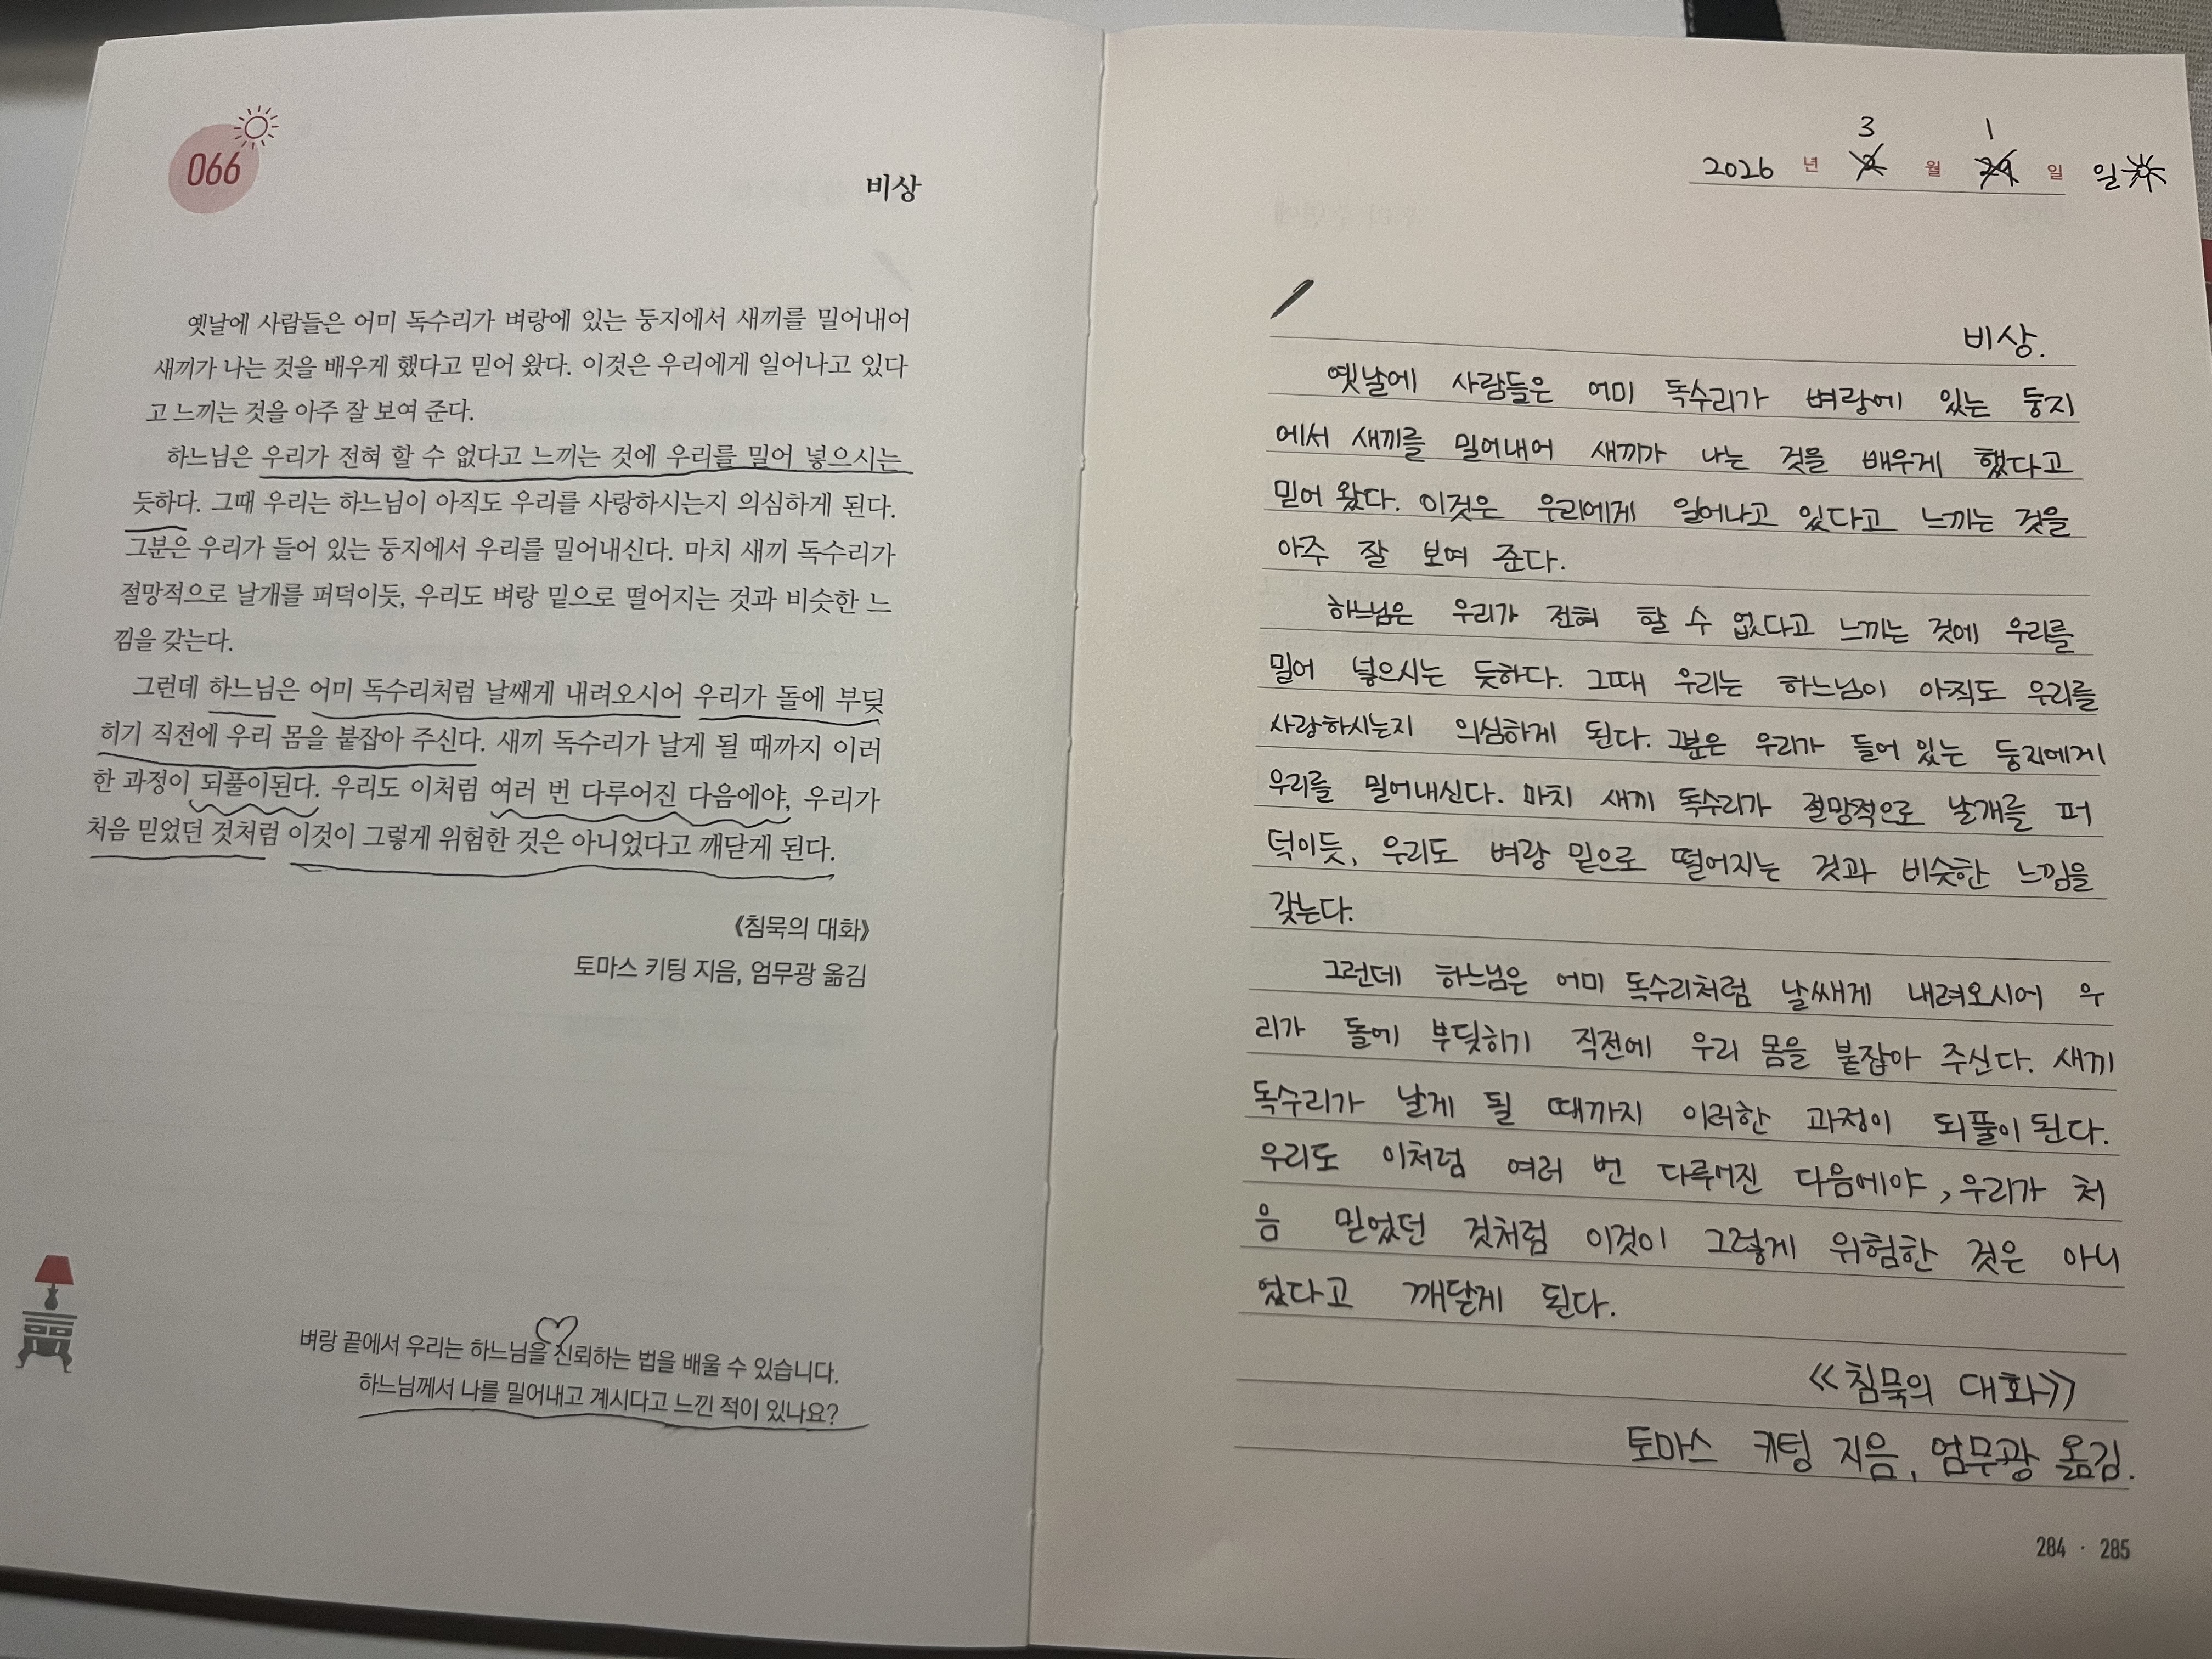 066
비상
옛날에 사람들은 어미 독수리가 벼랑에 있는 둥지에서 새끼를 밀어내어
새끼가 나는 것을 배우게 했다고 믿어 왔다. 이것은 우리에게 일어나고 있다
고 느끼는 것을 아주 잘 보여 준다.
하느님은 우리가 전혀 할 수 없다고 느끼는 것에 우리를 밀어 넣으시는
듯하다. 그때 우리는 하느님이 아직도 우리를 사랑하시는지 의심하게 된다.
그분은 우리가 들어 있는 둥지에서 우리를 밀어내신다. 마치 새끼 독수리가
절망적으로 날개를 퍼덕이듯, 우리도 벼랑 밑으로 떨어지는 것과 비슷한 느
낌을 갖는다.
그런데 하느님은 어미 독수리처럼 날쌔게 내려오시어 우리가 돌에 부딪
히기 직전에 우리 몸을 붙잡아 주신다. 새끼 독수리가 날게 될 때까지 이러
한 과정이 되풀이된다. 우리도 이처럼 여러 번 다루어진 다음에야, 우리가
처음 믿었던 것처럼 이것이 그렇게 위험한 것은 아니었다고 깨닫게 된다.
《침묵의 대화》
토마스 키팅 지음, 엄무광 옮김
벼랑 끝에서 우리는 하느님을 신뢰하는 법을 배울 수 있습니다.
하느님께서 나를 밀어내고 계시다고 느낀 적이 있나요?
3 1
2026 년 월 일 일
비상.
옛날에 사람들은 어미 독수리가 벼랑에 있는 둥지
에서 새끼를 밀어내어 새끼가 나는 것을 배우게 했다고
믿어 왔다. 이것은 우리에게 일어나고 있다고 느끼는 것을
아주 잘 보여 준다.
하느님은 우리가 전혀 할 수 없다고 느끼는 것에 우리를
밀어 넣으시는 듯하다. 그때 우리는 하느님이 아직도 우리를
사랑하시는지 의심하게 된다. 그분은 우리가 들어 있는 둥지에게
우리를 밀어내신다. 마치 새끼 독수리가 절망적으로 날개를 퍼
덕이듯, 우리도 벼랑 밑으로 떨어지는 것과 비슷한 느낌을
갖는다.
그런데 하느님은 어미 독수리처럼 날쌔게 내려오시어 우
리가 돌에 부딪히기 직전에 우리 몸을 붙잡아 주신다. 새끼
독수리가 날게 될 때까지 이러한 과정이 되풀이 된다.
우리도 이처럼 여러 번 다루어진 다음에야, 우리가 처
음 믿었던 것처럼 이것이 그렇게 위험한 것은 아니
었다고 깨닫게 된다.
《침묵의 대화》
토마스 키팅 지음, 엄무광 옮김.
284 · 285